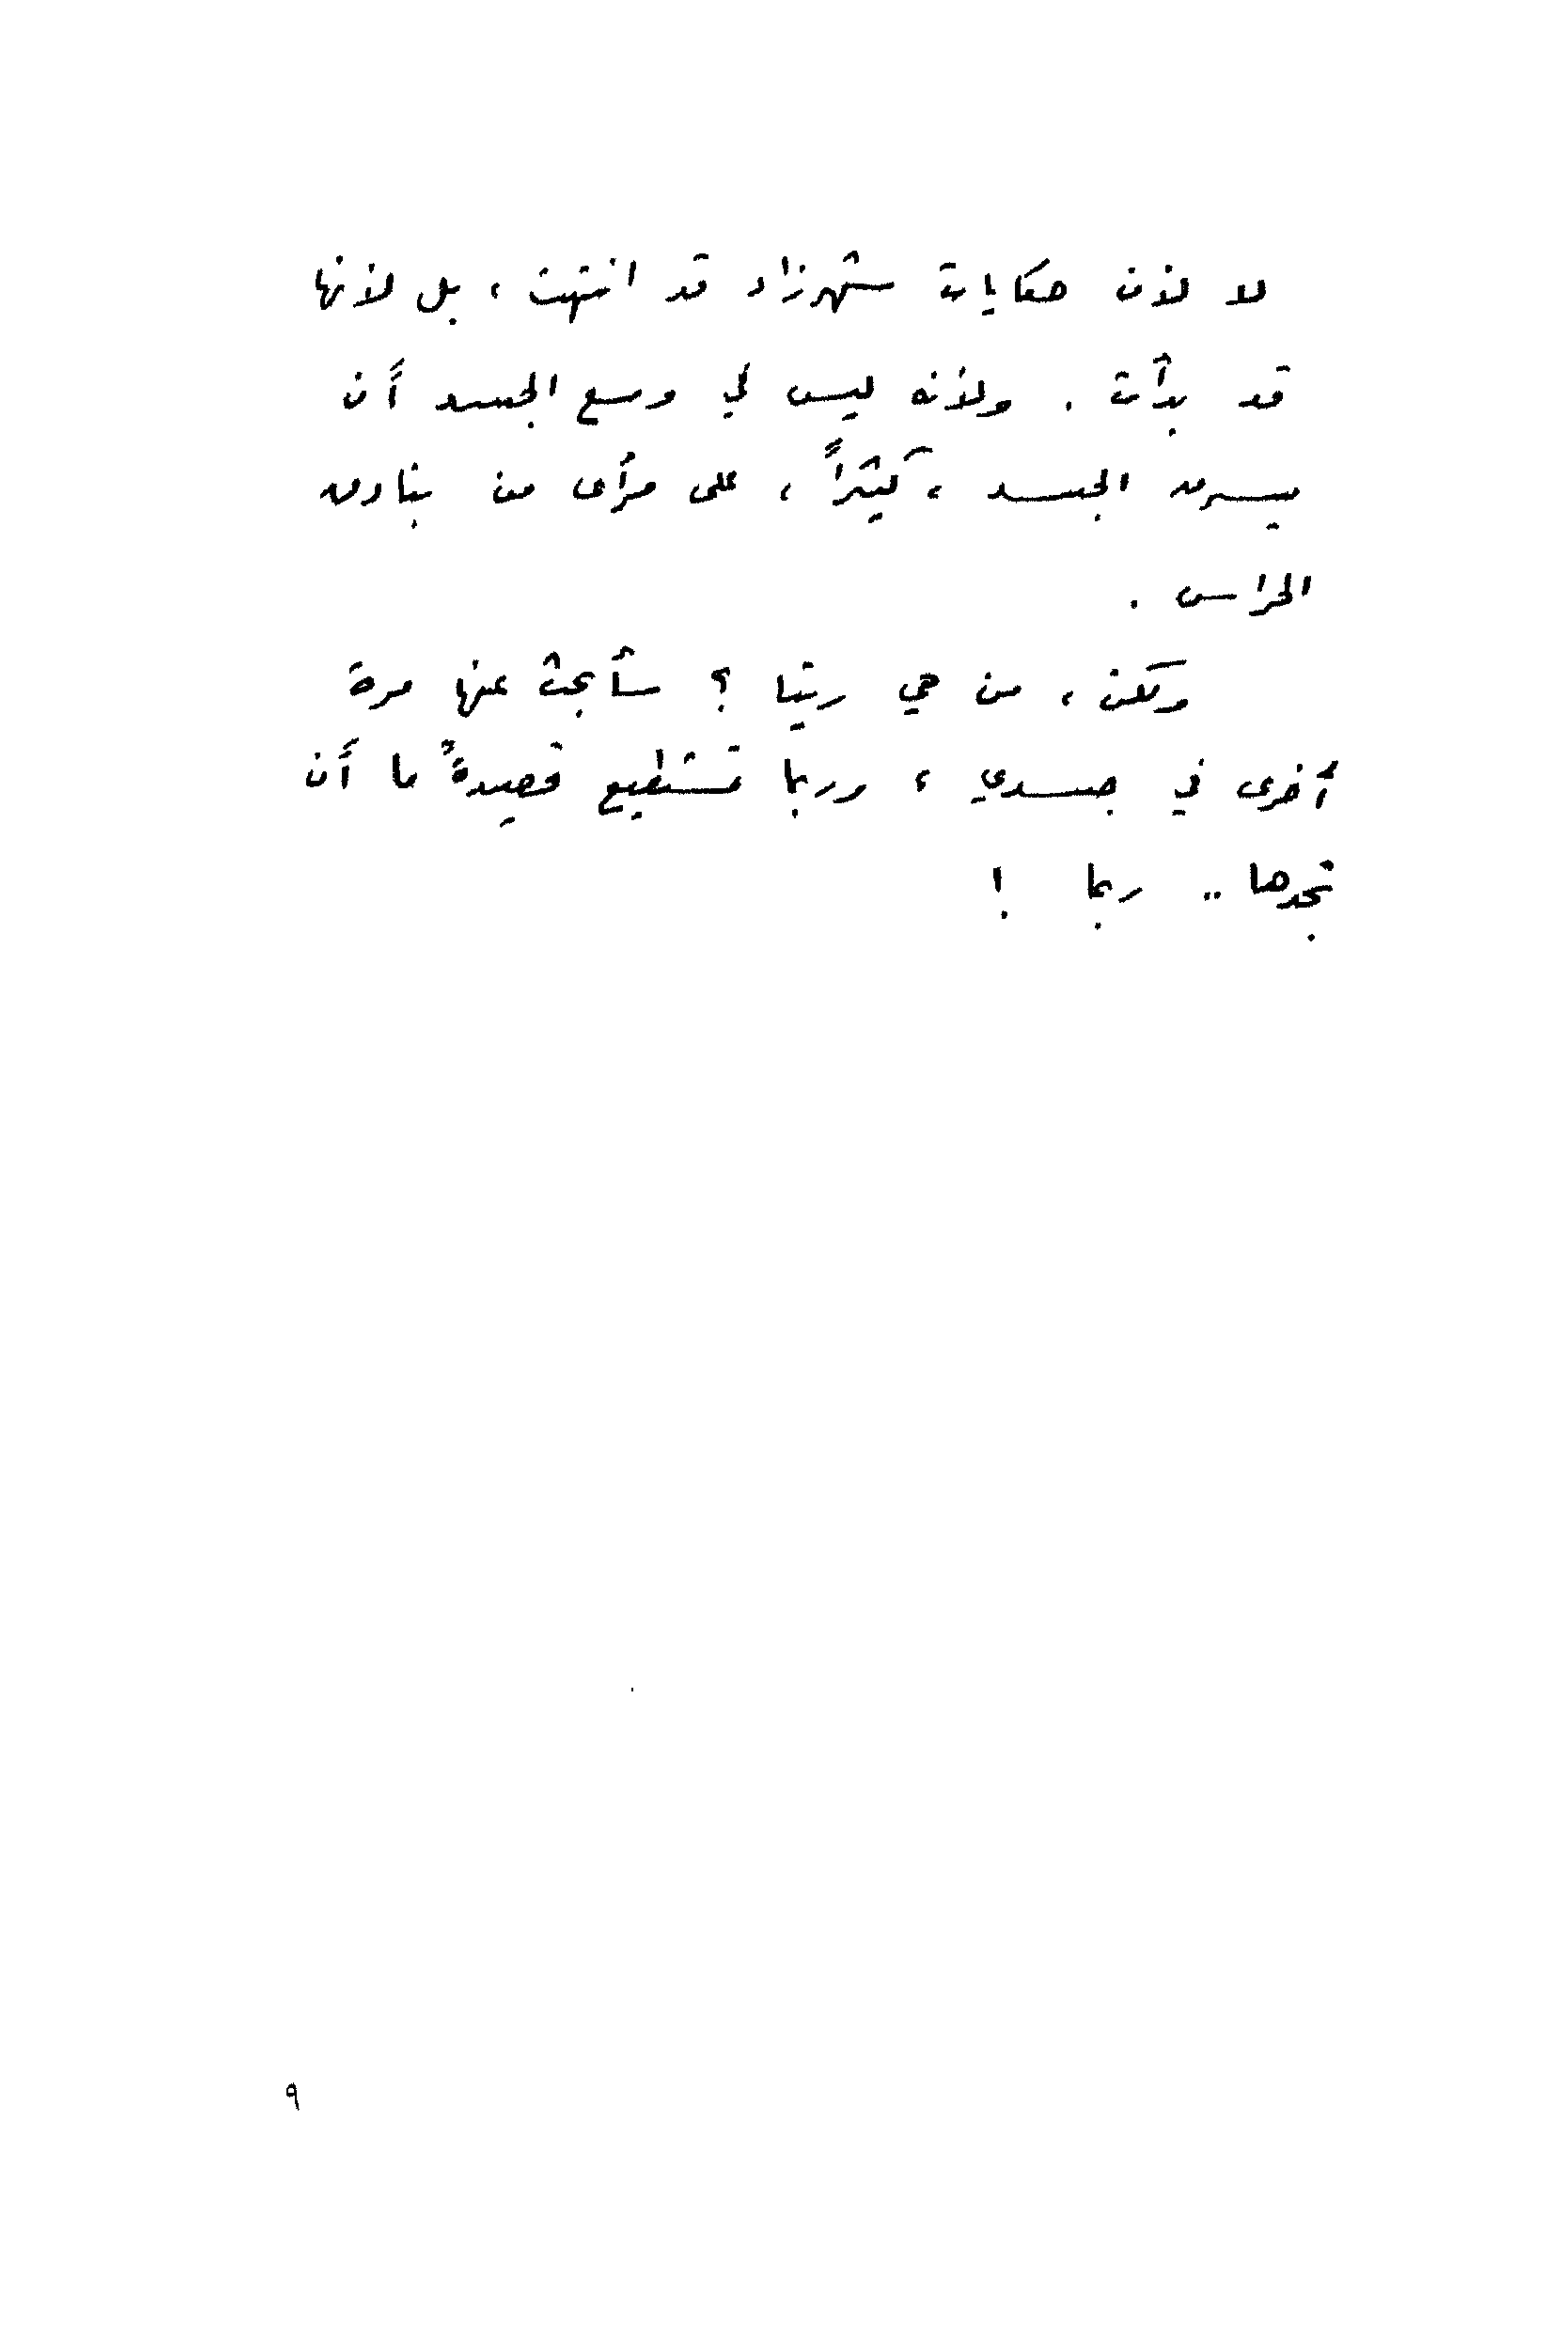 لا لأن حكايات شهرزاد قد انتهت ، بل لأنها
قد بدأت . ولأنه ليس في وسع الجسد أن
يسرق الجسد ، كثيراً ، على مرأى من بنادق
الحراس .
ولكن ، من هي ريتا ؟ سأبحث عنها مرة
أخرى في جسدي ، وربما تستطيع قصيدةٌ ما أن
تجدها .. ربما !
٩